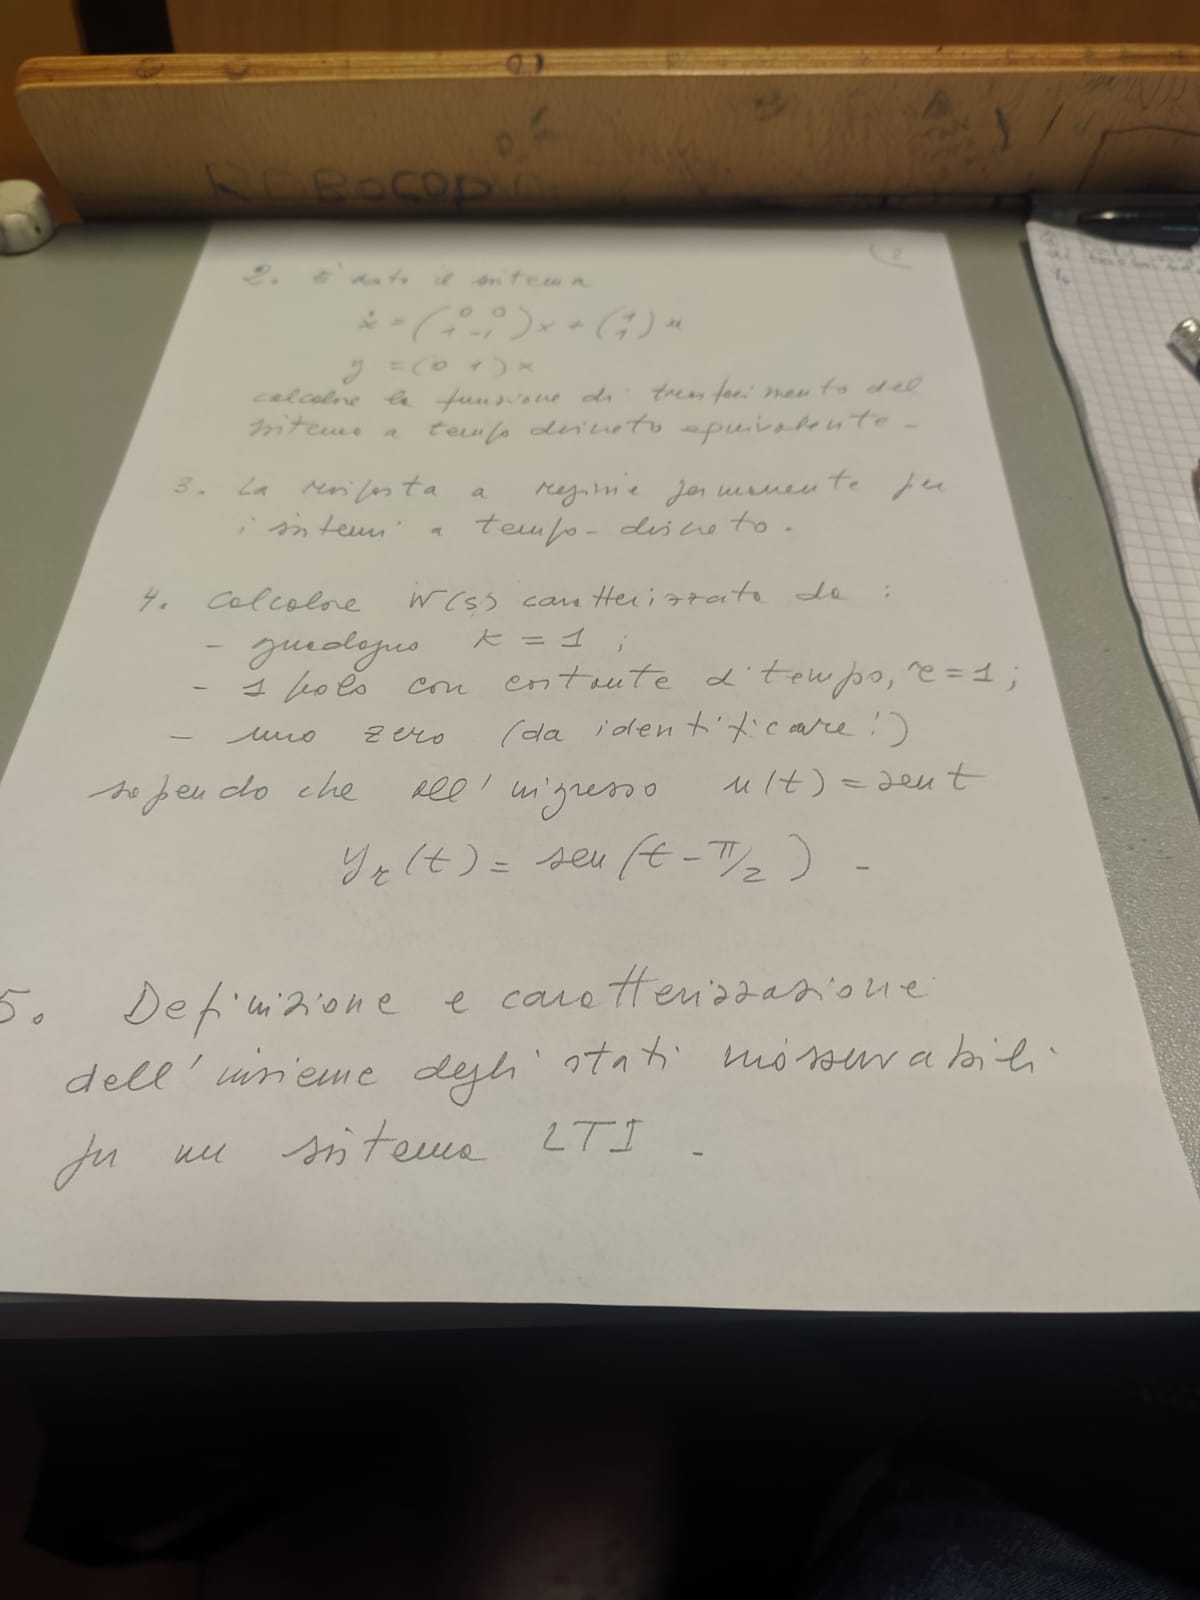 ROBOCOP
2
2. È dato il sistema
ẋ = (0 0
1 -1) x + (1
1) u
y = (0 1) x
calcolare la funzione di trasferimento del
sistema a tempo discreto equivalente -
3. La risposta a regime permanente per
i sistemi a tempo-discreto.
4. Calcolare W(s) caratterizzata da :
- guadagno K = 1 ;
- 1 polo con costante di tempo, τ = 1 ;
- uno zero (da identificare!)
sapendo che all'ingresso u(t) = sen t
yr(t) = sen (t - π/2) -
5. Definizione e caratterizzazione
dell'insieme degli stati inosservabili
per un sistema LTI .